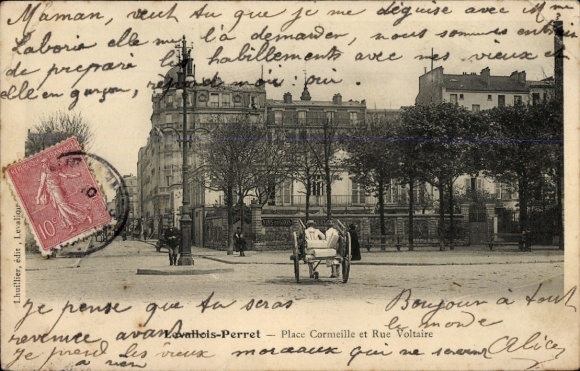 Maman, veut tu que je me déguise avec Mme
Laborie elle me l'a demander, nous sommes entrain
de preparer les habillements avec nos vieux
elle en garçon, reponds moi : oui.
Lhuillier, édit, Levallois
10
Levallois-Perret — Place Cormeille et Rue Voltaire
Je pense que tu seras
revenue avant
Je prend les vieux morceaux qui ne servent
a rien
Bonjour à tout
le monde
Alice